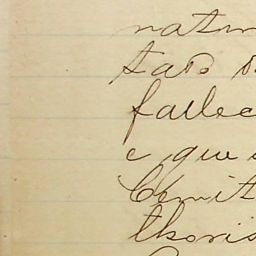 natur
tado
fallec
e que
Cemit
thoris